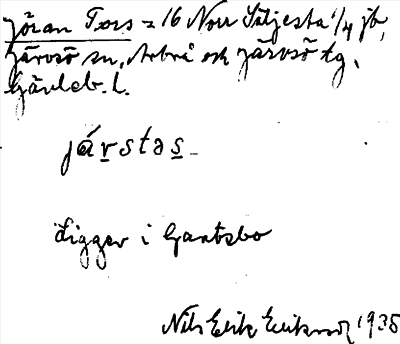 Jöran Pers = 16 Norr Sätjesta 1/4 jb,
Järvsö sn, Arbrå och Järvsö tg,
Gävleb. l.
járstas
Ligger i Gantsbo
Nils Erik Eriksson 1935